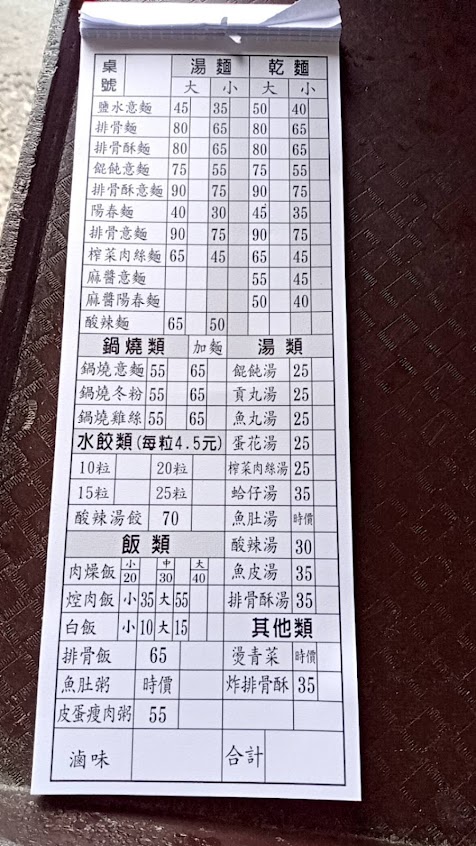 桌號 湯麵 乾麵
大 小 大 小
鹽水意麵 45 35 50 40
排骨麵 80 65 80 65
排骨酥麵 80 65 80 65
餛飩意麵 75 55 75 55
排骨酥意麵 90 75 90 75
陽春麵 40 30 45 35
排骨意麵 90 75 90 75
榨菜肉絲麵 65 45 65 45
麻醬意麵 55 45
麻醬陽春麵 50 40
酸辣麵 65 50
鍋燒類 加麵 湯類
鍋燒意麵 55 65 餛飩湯 25
鍋燒冬粉 55 65 貢丸湯 25
鍋燒雞絲 55 65 魚丸湯 25
水餃類(每粒4.5元) 蛋花湯 25
10粒 20粒 榨菜肉絲湯 25
15粒 25粒 蛤仔湯 35
酸辣湯餃 70 魚肚湯 時價
飯類 酸辣湯 30
肉燥飯 小20 中30 大40 魚皮湯 35
焢肉飯 小 35 大 55 排骨酥湯 35
白飯 小 10 大 15 其他類
排骨飯 65 燙青菜 時價
魚肚粥 時價 炸排骨酥 35
皮蛋瘦肉粥 55
滷味 合計